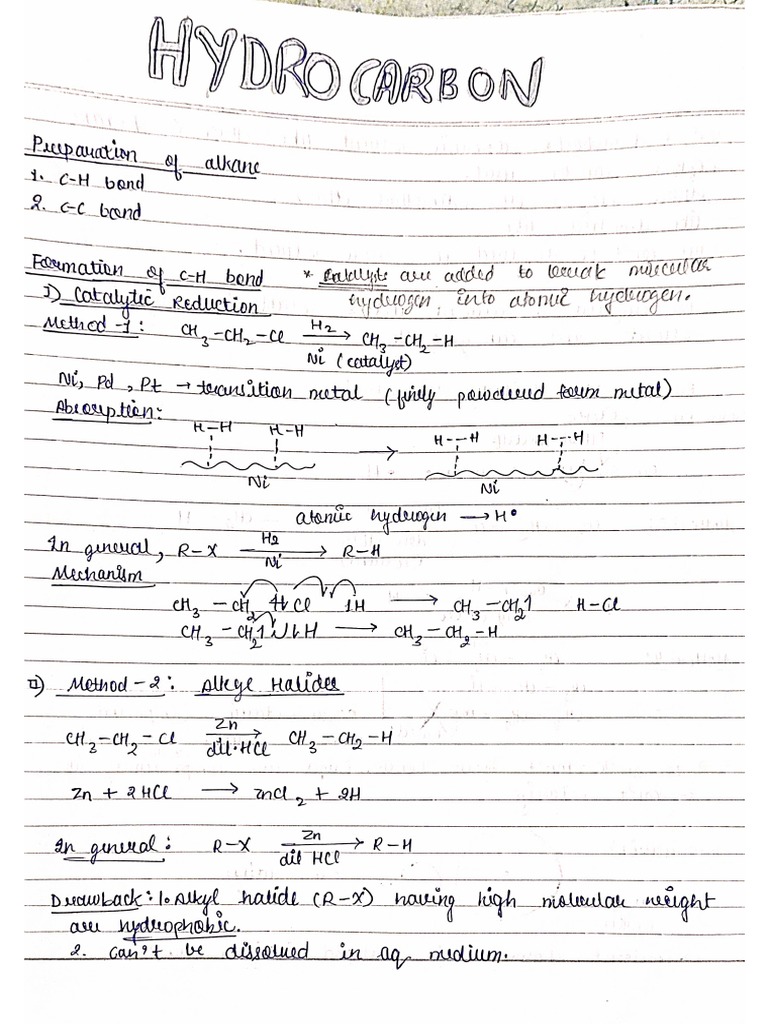 HYDROCARBON
Preparation of alkane
1. C-H bond
2. C-C bond
Formation of C-H bond * Catalysts are added to break molecular
hydrogen, into atomic hydrogen.
I) Catalytic Reduction
Method-1: CH₃-CH₂-Cl H₂ → Ni (catalyst) CH₃-CH₂-H
Ni, Pd, Pt → transition metal (finely powdered form metal)
Absorption:
H-H H-H → H---H H---H
Ni Ni
atomic hydrogen → H•
In general, R-X H₂ → Ni R-H
Mechanism
CH₃-CH₂ Cl 1H → CH₃-CH₂1 H-Cl
CH₃-CH₂1 H → CH₃-CH₂-H
II) Method-2: Alkyl Halides
CH₃-CH₂-Cl Zn → dil·HCl CH₃-CH₂-H
Zn + 2HCl → ZnCl₂ + 2H
In general: R-X Zn → dil HCl R-H
Drawback: 1. Alkyl halide (R-X) having high molecular weight
are hydrophobic.
2. Can't be dissolved in aq medium.